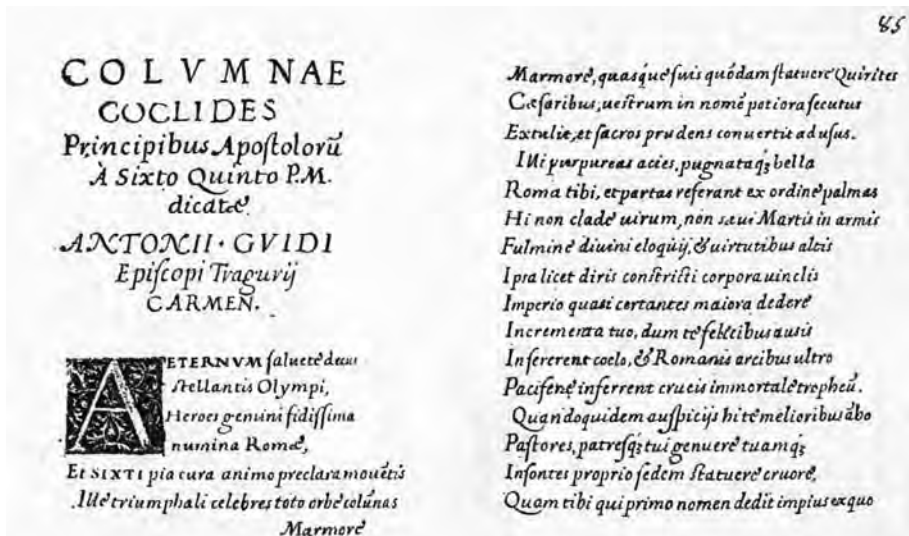 COLVMNAE
COCLIDES
Principibus Apoſtolorū
À Sixto Quinto P.M.
dicatæ.
ANTONII · GVIDI
Epiſcopi Tragurij
CARMEN.
AETERNVM ſaluete decus
ſtellantis Olympi,
Heroes genuini fidiſſima
numina Romæ,
Et SIXTI pia cura animo preclara mouētis
Ille triumphali celebres toto orbe colūnas
Marmore
85
Marmore, quasque ſuis quōdam ſtatuere Quirites
Cæſaribus, ueſtrum in nomē potiora ſecutus
Extulit, et ſacros prudens conuertit ad uſus.
Illi purpureas acies, pugnataqꝫ bella
Roma tibi, et partas referant ex ordine palmas
Hi non clade uirum, non sæui Martis in armis
Fulmine diuini eloquij, & uirtutibus altis
Ipsa licet diris conſtricti corpora uinclis
Imperio quasi certantes maiora dedere
Incrementa tuo, dum te felicibus ausis
Inſererent coelo, & Romanis arcibus ultro
Pacifene inferrent crucis immortale tropheū.
Quandoquidem auſpicijs hi te melioribus ābo
Paſtores, patreſqꝫ tui genuere tuamqꝫ
Inſontes proprio ſedem ſtatuere cruore,
Quam tibi qui primo nomen dedit impius ex quo